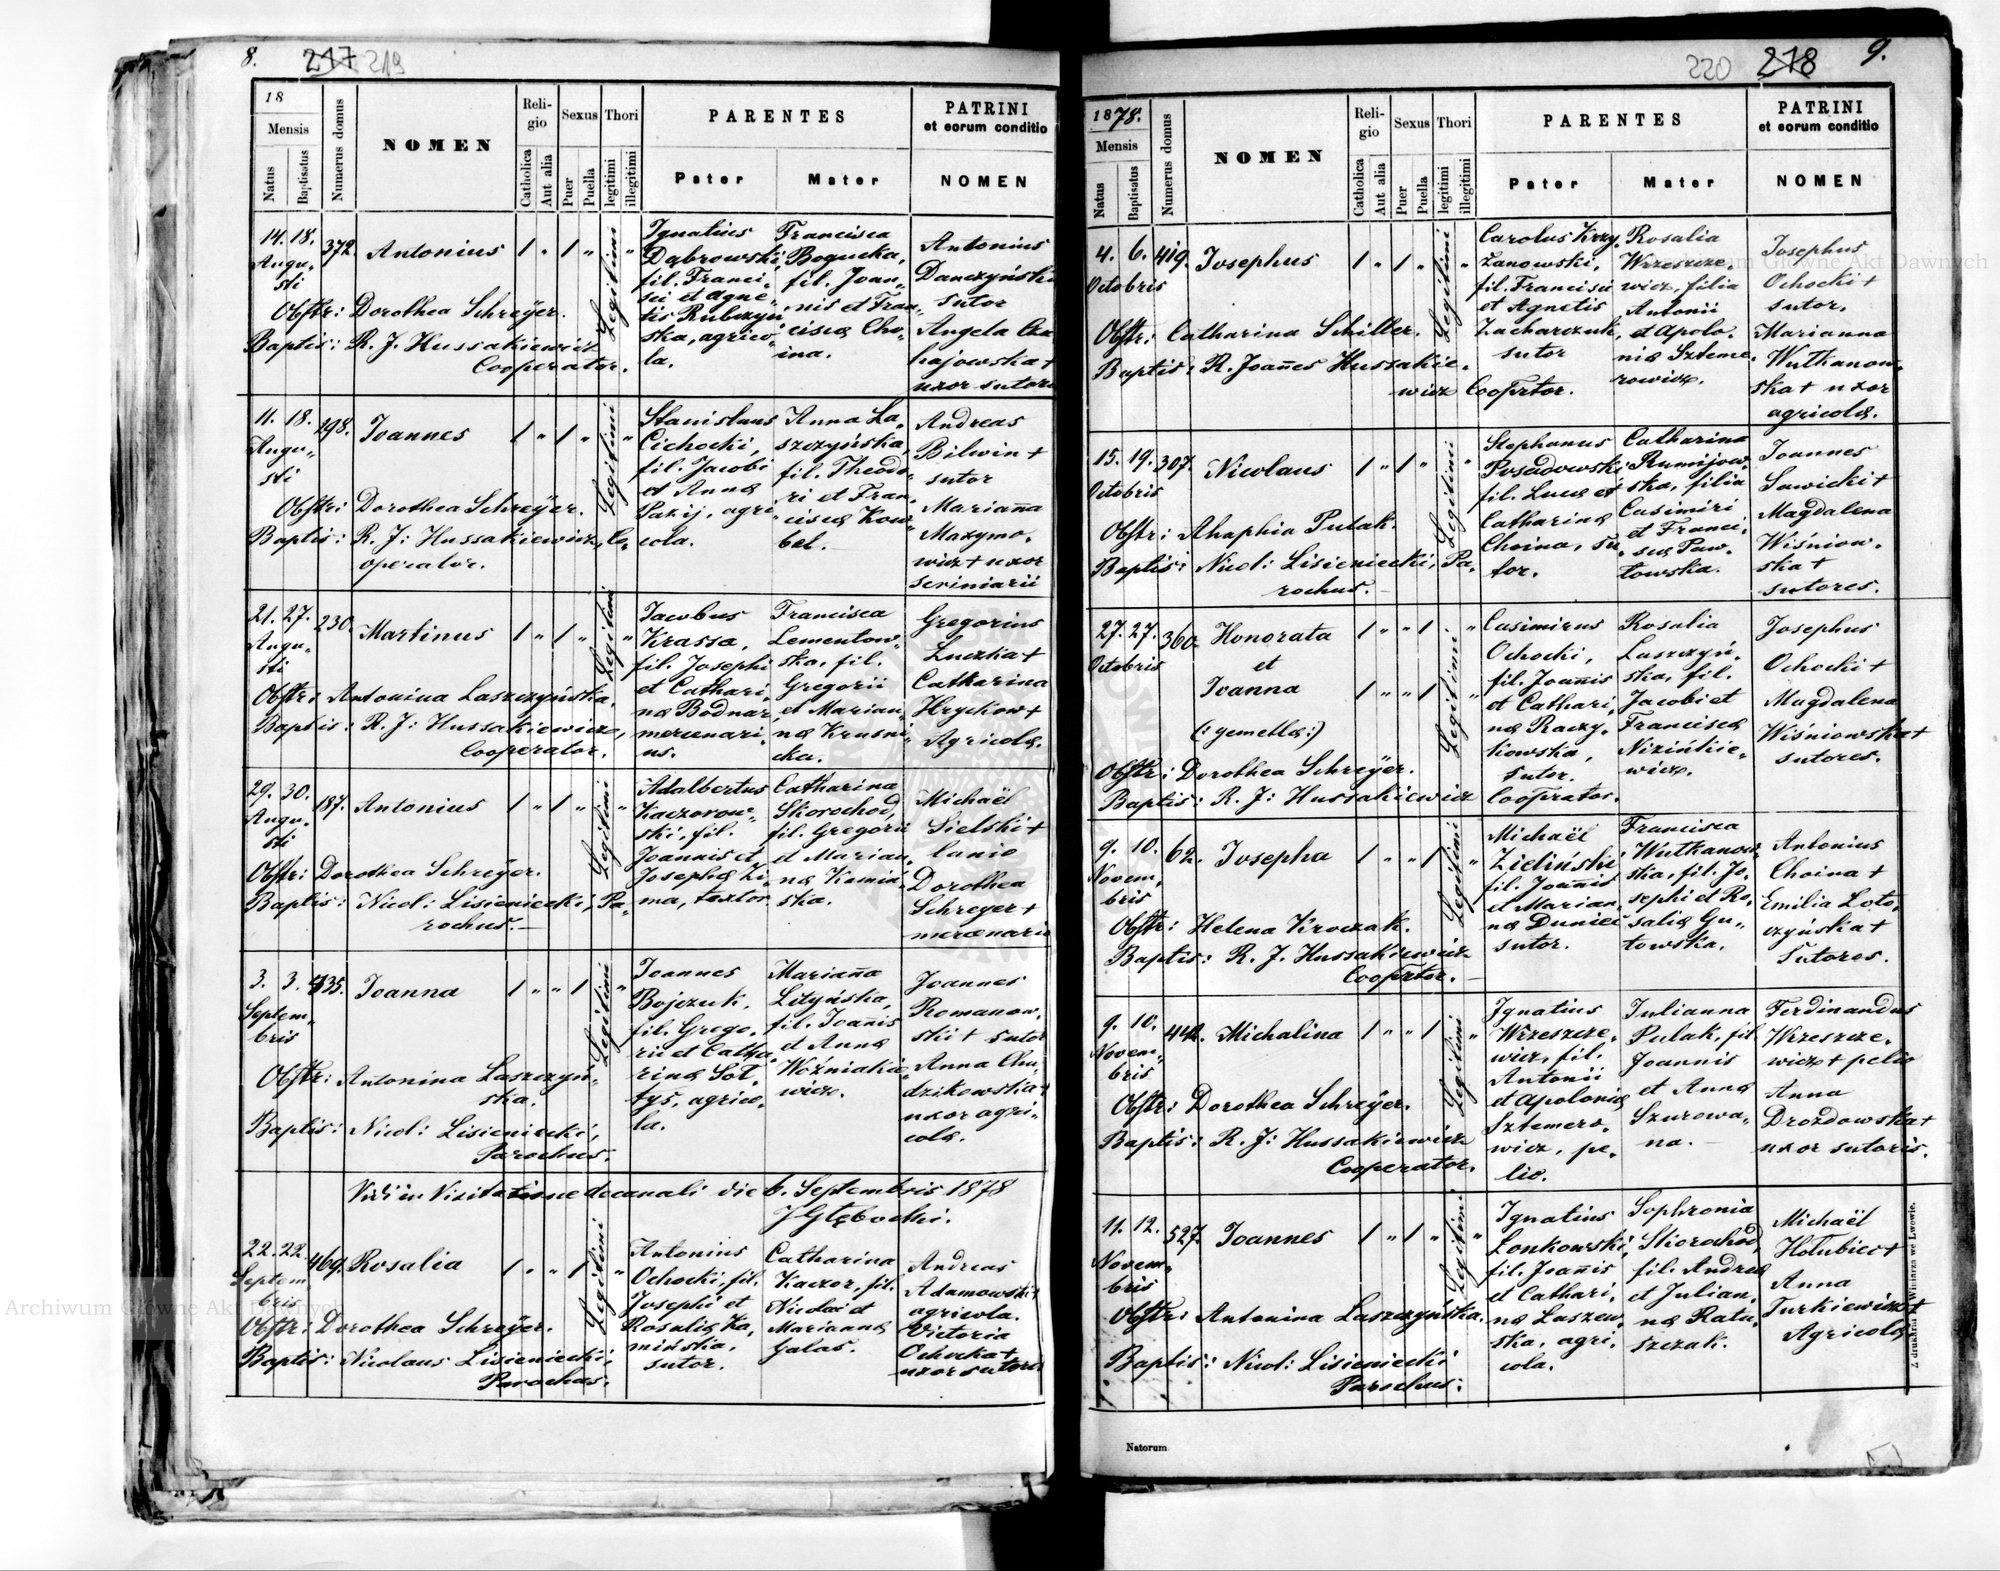 8. 217 219
18
Mensis
Natus
Baptisatus
Numerus domus
NOMEN
Religio
Catholica
Aut alia
Sexus
Puer
Puella
Thori
legitimi
illegitimi
PARENTES
Pater
Mater
PATRINI
et eorum conditio
NOMEN
14. 18. 372. Antonius / „ / „ Legitimi „
Augu„
sti
Obstr: Dorothea Schreÿer.
Baptis: R. J. Hussakiewicz
Cooperator.
Ignatius
Dąbrowski,
fil. Franci„
sci et Agne„
tis Rubczyń
ska, agrico„
la.
Francisca
Bogucka,
fil. Joan„
nis et Fran„
ciscæ Cho„
ina.
Antonius
Danczyński
sutor
Angela
hajowska +
uxor sutoris
11. 18. 298. Joannes / „ / „ Legitimi „
Augu„
sti
Obstr: Dorothea Schreÿer.
Baptis: R. J: Hussakiewicz, Co„
operator.
Stanislaus
Cichocki,
fil. Jacobi
et Annæ
Pazij, agri„
cola.
Anna La„
szczyńska,
fil. Theodo„
ri et Fran„
ciscæ Kow„
bel.
Andreas
Bilwin +
sutor
Mariana
Mazymo„
wicz + uxor
scriniarii
21. 27. 230. Martinus / „ / „ Legitimi „
Augu„
sti
Obstr: Antonina Laszczyńska.
Baptis: R. J: Hussakiewicz,
Cooperator.
Jacobus
Krassa,
fil. Josephi
et Cathari„
næ Bodnar,
mercenari„
us.
Francisca
Lementow„
ska, fil.
Gregorii
et Marian„
næ Krusni„
cka.
Gregorius
Luczka +
Catharina
Hryckow +
Agricolæ.
29. 30. 187. Antonius / „ / „ Legitimi „
Augu„
sti
Obstr: Dorothea Schreÿer.
Baptis: Nicol: Lisieniecki, Pa„
rochus.—
Adalbertus
Kaczorow„
ski, fil.
Joannis et
Josephæ Zi„
ma, textor.
Catharina
Skorochod,
fil. Gregorii
et Marian„
næ Kamiń„
ska.
Michaël
Sielski +
lanio
Dorothea
Schreyer +
mercenaria
3. 3. 435. Joanna / „ „ / Legitimi „
Septem„
bris
Obstr: Antonina Laszczyń„
ska.
Baptis: Nicol: Lisieniecki,
Parochus.
Joannes
Bojczuk,
fil. Grego„
rii et Catha„
rinæ Sot„
tys, agrico„
la.
Mariana
Lityńska,
fil. Joanis
et Annæ
Woźniakie„
wicz.
Joannes
Romanow„
ski + sutor
Anna Chu„
dzikowska +
uxor agri„
colæ.
Vidi in Visitatione decanali die 6. Septembris 1878
J Głębocki.
22. 22. 469. Rosalia / „ „ / Legitimi „
Septem
bris
Obstr: Dorothea Schreÿer.
Baptis: Nicolaus Lisieniecki,
Parochus.
Antonius
Ochocki, fil.
Josephi et
Rosaliæ Ka„
mińska,
sutor.
Catharina
Kaczor, fil.
Nicolai et
Mariannæ
Galas.
Andreas
Adamowski +
agricola.
Victoria
Ochocka +
uxor sutoris
220 218 9.
1878.
Mensis
Natus
Baptisatus
Numerus domus
NOMEN
Religio
Catholica
Aut alia
Sexus
Puer
Puella
Thori
legitimi
illegitimi
PARENTES
Pater
Mater
PATRINI
et eorum conditio
NOMEN
4. 6. 419. Josephus / „ / „ Legitimi „
Octobris
Obstr: Catharina Schiller.
Baptis: R. Joañes Hussakie„
wicz Cooprtor.
Carolus Krzy„
żanowski,
fil. Francisci
et Agnetis
Zacharczuk,
sutor
Rosalia
Wrzeszcze„
wicz, filia
Antonii
et Apolo„
niæ Szteme„
rowicz.
Josephus
Ochocki +
sutor,
Marianna
Wutkanow„
ska + uxor
agricolæ.
15. 19. 307. Nicolaus / „ / „ Legitimi „
Octobris
Obstr: Ahaphia Pulak.
Baptis: Nicol: Lisieniecki, Pa„
rochus.—
Stephanus
Posadowski
fil. Lucæ et
Catharinæ
Choina, su„
tor.
Catharina
Rumijow„
ska, filia
Casimiri
et Franci„
scæ Paw„
łowska.
Joannes
Sawicki +
Magdalena
Wiśniow„
ska +
sutores.
27. 27. 360. Honorata / „ „ / „
Octobris et
Joanna / „ „ / Legitimi „
(: gemellæ :)
Obstr: Dorothea Schreÿer.
Baptis: R. J: Hussakiewicz Cooprator.
Casimirus
Ochocki,
fil. Joañis
et Cathari„
næ Raczy„
kowska,
sutor.
Rosalia
Laszczyń„
ska, fil.
Jacobi et
Franciscæ
Nizińkie„
wicz.
Josephus
Ochocki +
Magdalena
Wiśniowska +
sutores.
9. 10. 62. Josepha / „ „ / Legitimi „
Novem„
bris
Obstr: Helena Kroczak.
Baptis: R. J. Hussakiewicz
Cooprtor.—
Michaël
Zieliński
fil. Joañis
et Marian„
næ Duniec
sutor.
Francisca
Wutkanow„
ska, fil. Jo„
sephi et Ro„
saliæ Gu„
towska.
Antonius
Choina +
Emilia Loto„
czyńska +
Sutores.
9. 10. 442. Michalina / „ „ / Legitimi „
Novem„
bris
Obstr: Dorothea Schreÿer.
Baptis: R. J: Hussakiewicz
Cooperator.
Ignatius
Wrzeszcze„
wicz, fil.
Antonii
et Apoloniæ
Sztemero„
wicz, pe„
lio.
Julianna
Pulak, fil.
Joannis
et Annæ
Szurowa„
na.—
Ferdinandus
Wrzeszcze„
wicz + pelio
Anna
Drozdowska +
uxor sutoris.
11. 12. 527. Joannes / „ / „ Legitimi „
Novem„
bris
Obstr: Antonina Laszczyńska.
Baptis: Nicol: Lisieniecki
Parochus.
Ignatius
Lonkowski,
fil. Joañis
et Cathari„
næ Laszew„
ska, agri„
cola.
Sophronia
Skorochod,
fil. Andreæ
et Julian„
næ Ratu„
szczak.
Michaël
Hołubiec +
Anna
Turkiewicz +
Agricolæ
Natorum
Z drukarni Winiarza we Lwowie.
Archiwum Główne Akt Dawnych
Archiwum Główne Akt Dawnych